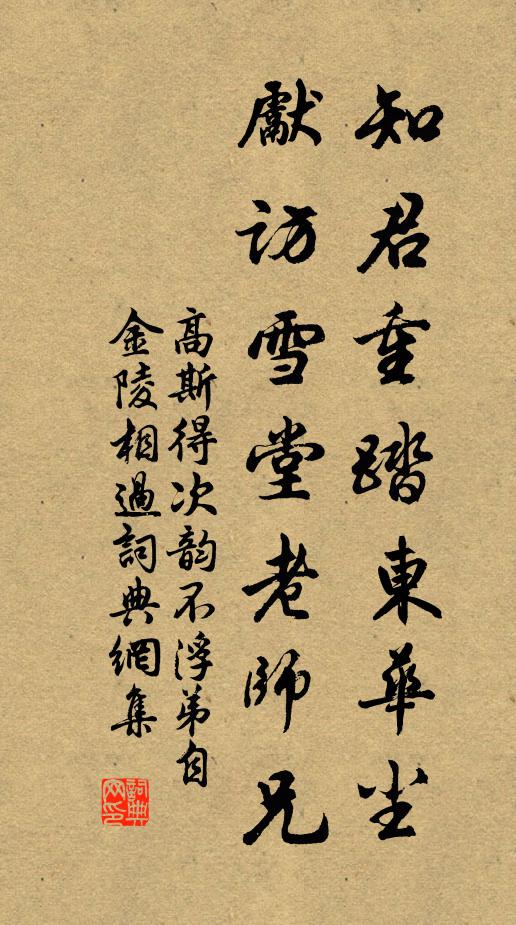 知君重踏東華尘
獻訪雪堂老師兄
高斯得次韵不浮弟自
金陵相過詞典網集
詞典网印